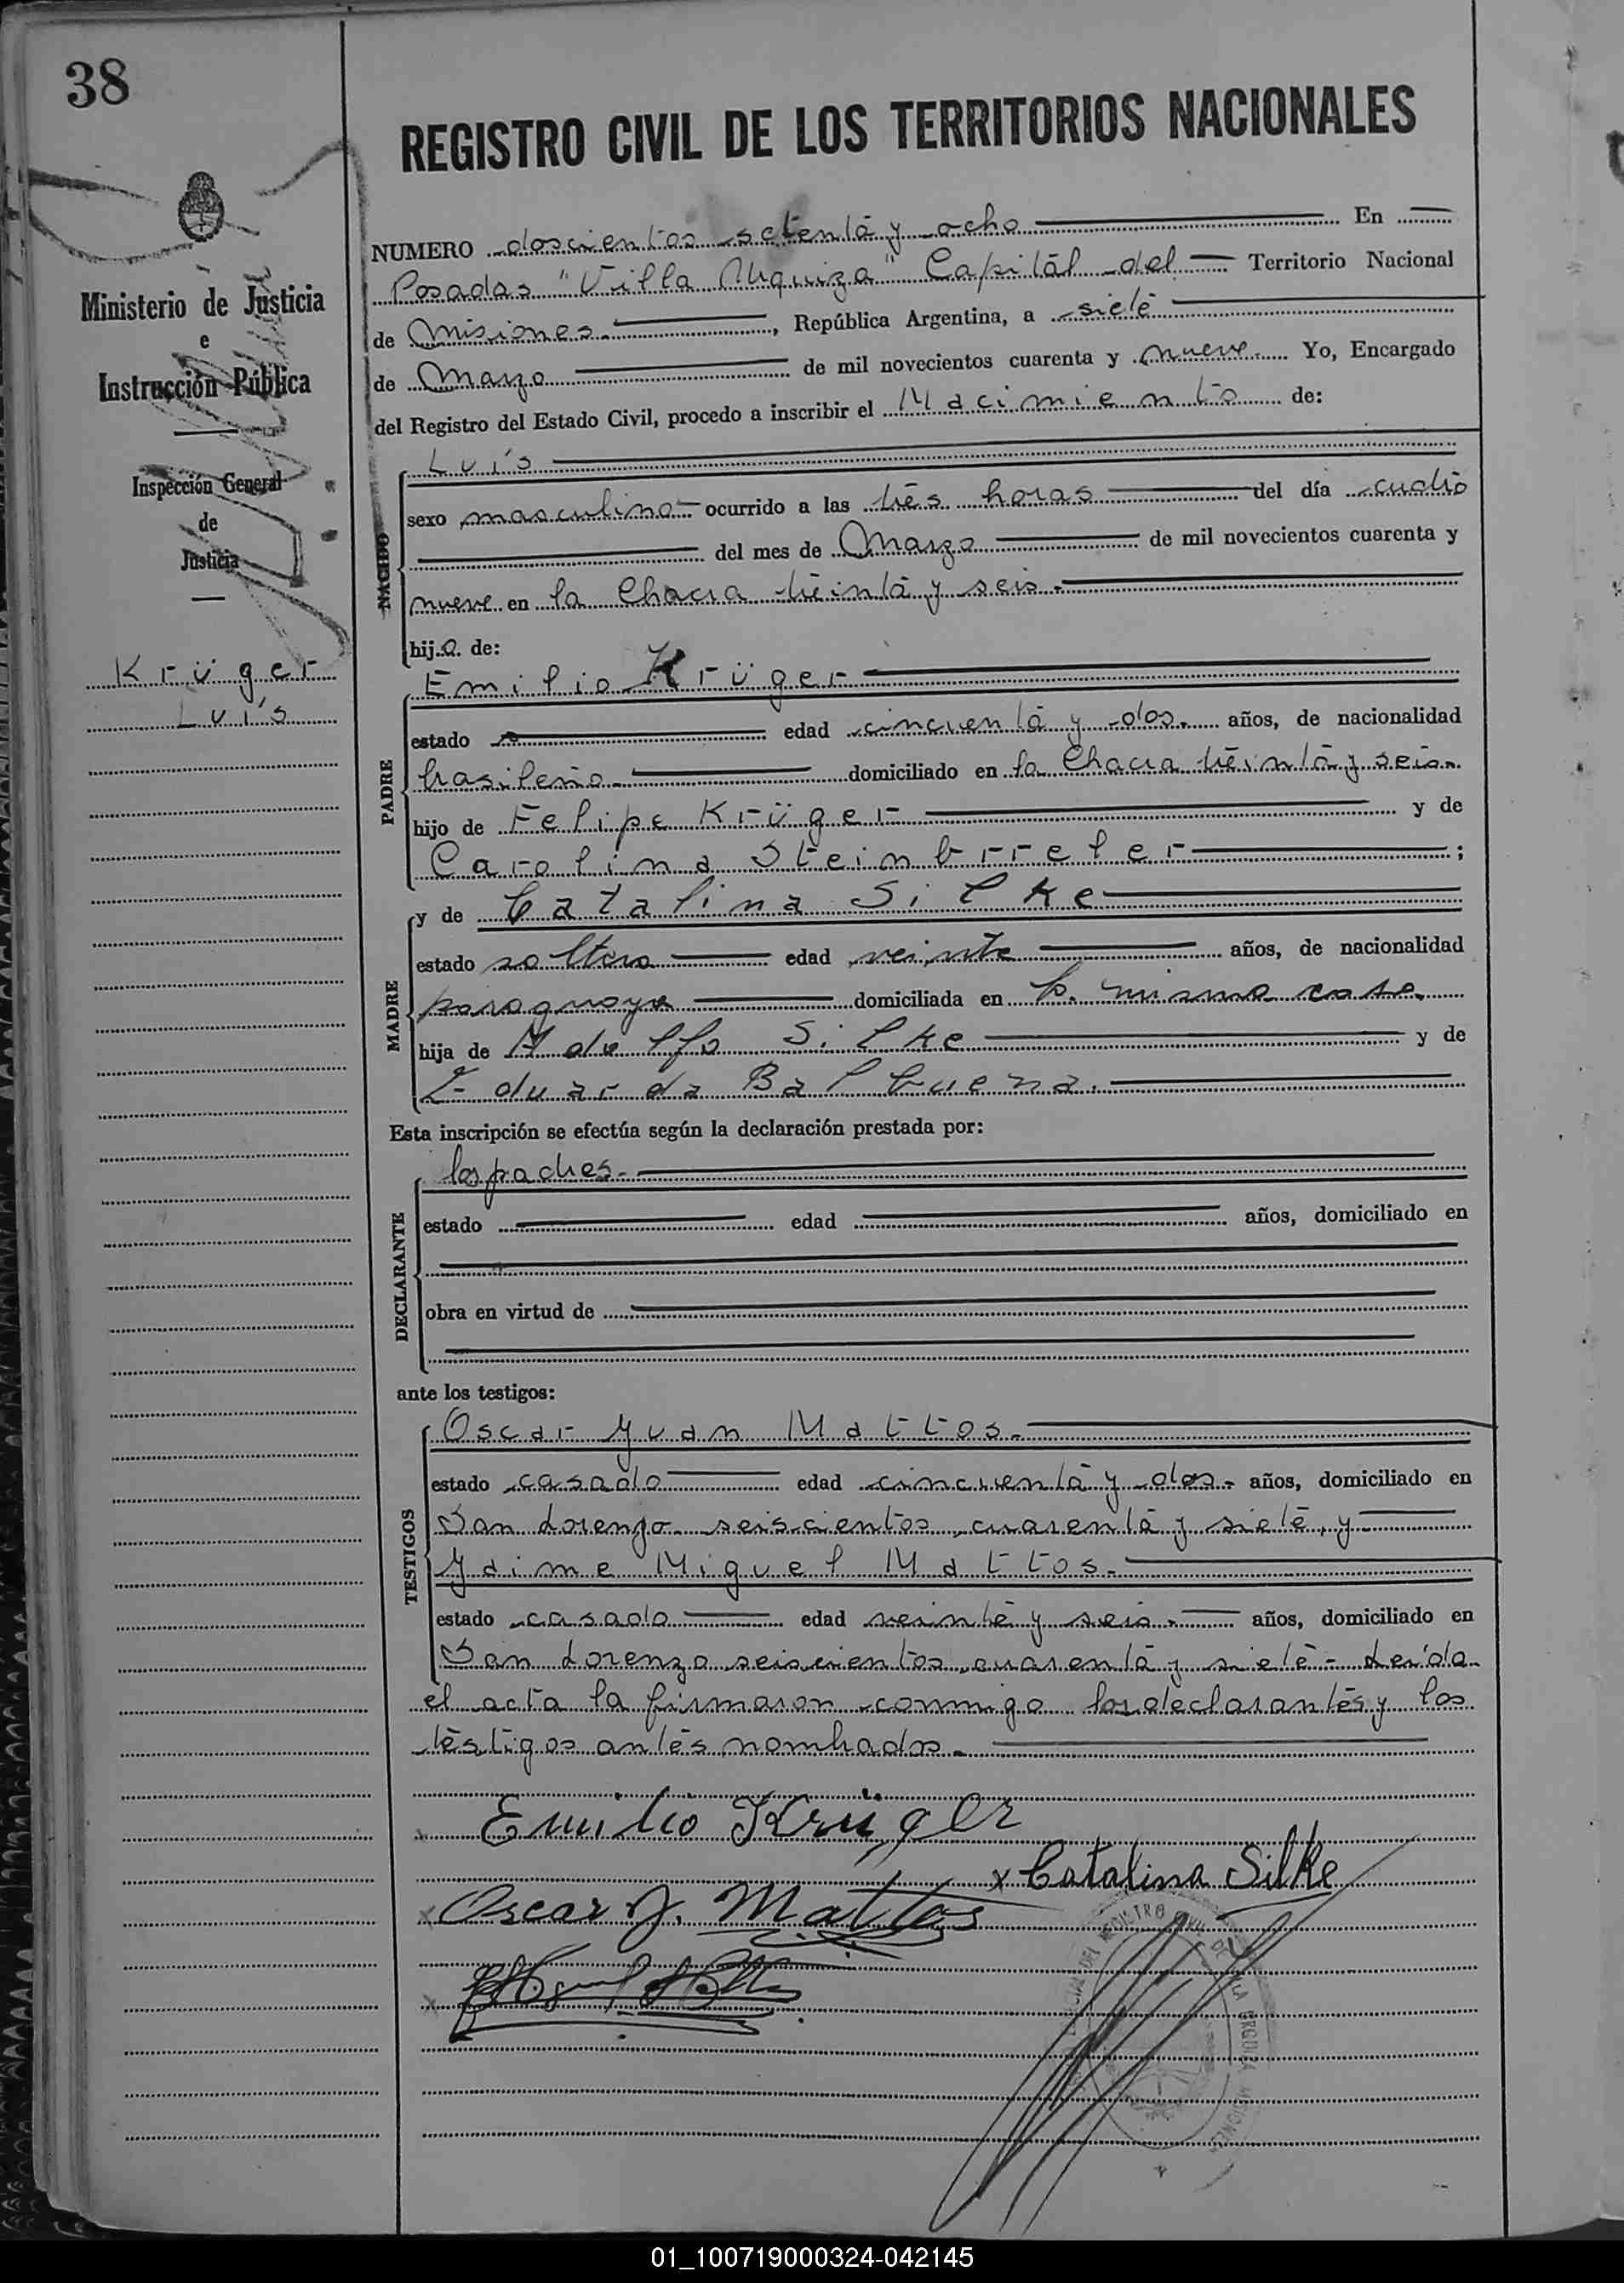 38
REGISTRO CIVIL DE LOS TERRITORIOS NACIONALES
NUMERO doscientos setenta y ocho En
Posadas "Villa Urquiza" Capital del Territorio Nacional
de Misiones. , República Argentina, a siete
de Marzo de mil novecientos cuarenta y nueve. Yo, Encargado
del Registro del Estado Civil, procedo a inscribir el Nacimiento de:
Ministerio de Justicia
e
Instrucción Pública
Inspección General
de
Justicia
Krüger
Luís
NACIDO
Luís
sexo masculino ocurrido a las tres horas del día cuatro
del mes de Marzo de mil novecientos cuarenta y
nueve en la Chacra treinta y seis.
hijo de:
PADRE
Emilio Krüger
estado edad cincuenta y dos. años, de nacionalidad
brasileña. domiciliado en la Chacra treinta y seis.
hijo de Felipe Krüger y de
Carolina Steinbrreler ;
MADRE
y de Catalina Silke
estado soltera edad veinte años, de nacionalidad
paraguaya domiciliada en la misma casa.
hija de Adolfo Silke y de
Eduarda Balbuena.
Esta inscripción se efectúa según la declaración prestada por:
DECLARANTE
los padres.
estado edad años, domiciliado en
obra en virtud de
ante los testigos:
TESTIGOS
Oscar Juan Mattos.
estado casado edad cincuenta y dos. años, domiciliado en
San Lorenzo seiscientos cuarenta y siete, y
Jaime Miguel Mattos.
estado casado edad veinte y seis. años, domiciliado en
San Lorenzo seiscientos cuarenta y siete - Leída
el acta la firmaron conmigo los declarantes y los
testigos antes nombrados.
Emilio Krüger
x Catalina Silke
x Oscar J. Mattos
x
01_100719000324-042145